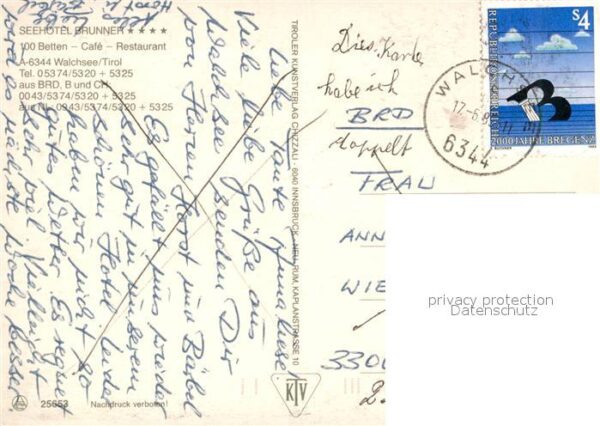 SEEHOTEL BRUNNER ★ ★ ★ ★
100 Betten - Café - Restaurant
A-6344 Walchsee/Tirol
Tel. 05374/5320 + 5325
aus BRD, B und CH
0043/5374/5320 + 5325
aus NL - 0943/5374/5320 + 5325
Liebe Tante Annaliese!
Viele liebe Grüße aus
Walchsee senden Dir
von Herzen Horst und Bärbel
Es gefällt uns wieder
sehr gut in unserem
schönen Hotel leider
haben wir nicht so
gutes Wetter. Es regnet
sehr viel vielleicht
wird es nächste Woche besser
Alles Liebe
Horst u. Bärbel
25653 Nachdruck verboten!
TIROLER KUNSTVERLAG CHIZZALI - 6040 INNSBRUCK - NEU-RUM, KAPLANSTRASSE 10
KTV
Diese Karte
habe ich
BRD
doppelt
FRAU
ANN
WIE
3300
2
WALCH
17.-6.8
6344
S4
REPUBLIK ÖSTERREICH
2000 JAHRE BREGENZ
privacy protection
Datenschutz